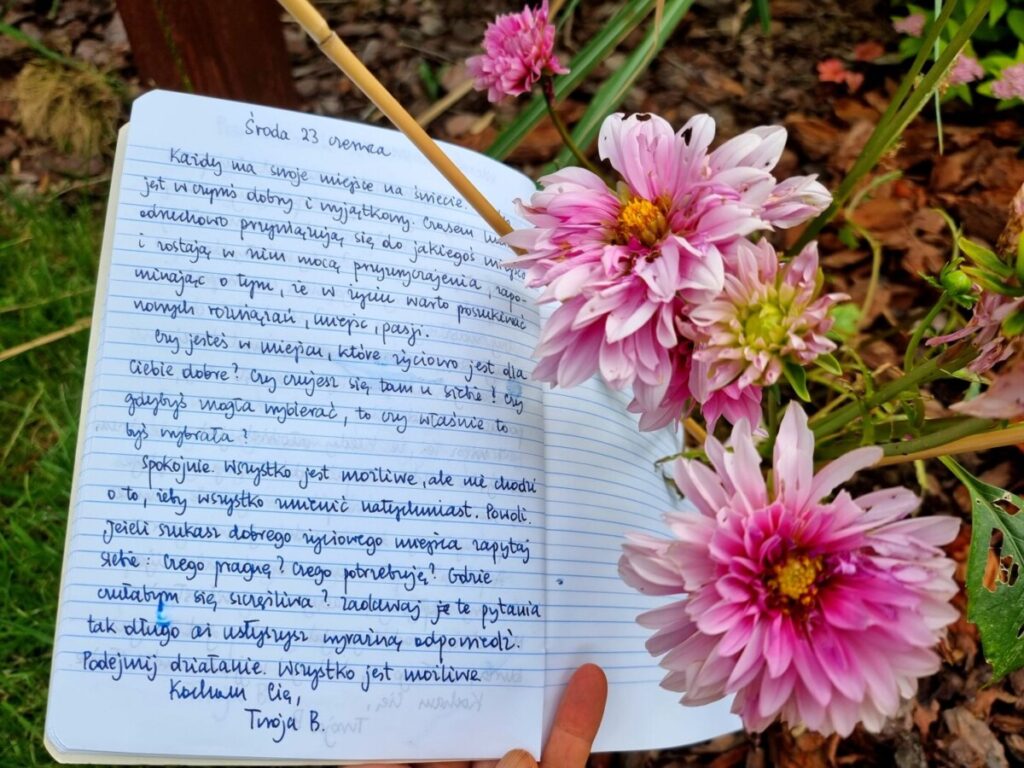 Środa 23 czerwca
Każdy ma swoje miejsce na świecie.
jest w czymś dobry i wyjątkowy. Czasem
odruchowo przywiązują się do jakiegoś miejsca
i zostają w nim mocą przyzwyczajenia, zapo-
minając o tym, że w życiu warto poszukiwać
nowych rozwiązań, miejsc, pasji.
Czy jesteś w miejscu, które życiowo jest dla
Ciebie dobre? Czy czujesz się tam u siebie? Czy
gdybyś mogła wybierać, to czy właśnie to
byś wybrała?
Spokojnie. Wszystko jest możliwe, ale nie chodzi
o to, żeby wszystko zmienić natychmiast. Powoli.
Jeżeli szukasz dobrego życiowego miejsca zapytaj
siebie: Czego pragnę? Czego potrzebuję? Gdzie
czułabym się szczęśliwa? Zadawaj je te pytania
tak długo aż usłyszysz wyraźną odpowiedź.
Podejmij działanie. Wszystko jest możliwe.
Kocham Cię,
Twoja B.